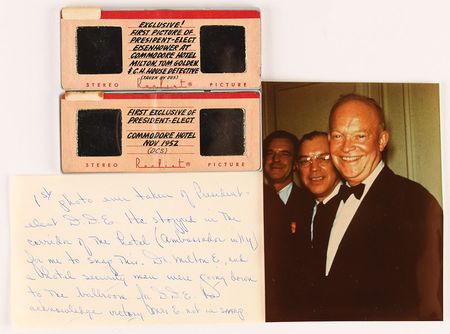 EXCLUSIVE!
FIRST PICTURE OF
PRESIDENT-ELECT
EISENHOWER AT
COMMODORE HOTEL
MILTON, TOM GOLDEN,
& C.H. HOUSE DETECTIVE
(TAKEN BY DCS)
STEREO Realist PICTURE
FIRST EXCLUSIVE OF
PRESIDENT-ELECT.
COMMODORE HOTEL
NOV 1952
(DCS)
STEREO Realist PICTURE
1st photo ever taken of President-
elect D.D.E. He stopped in the
corridor of the hotel (Ambassador NY)
for me to snap this. Dr. Milton E. and
a hotel security man were going down
to the ballroom for D.D.E. to
acknowledge victory. Mrs E. not in snap